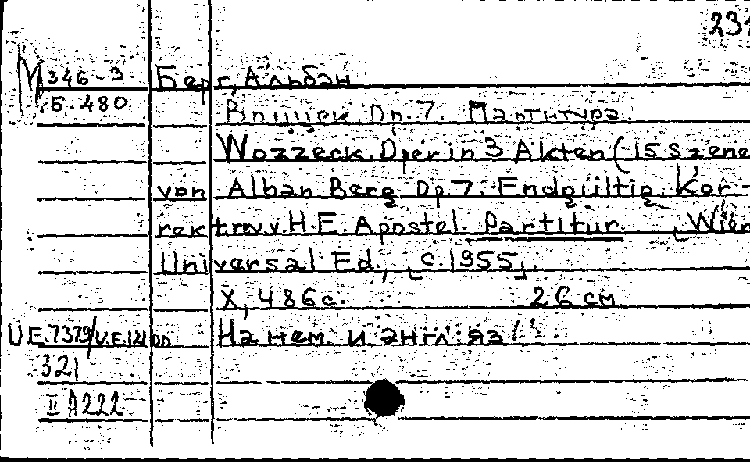 231
М346-3 Берг, Альбан
Б.480 Воццек. Op. 7. Партитура.
Wozzeck. Oper in 3 Akten (15 Szene
von Alban Berg Op 7. Endgültig. Kor-
rektur v. H.E. Apostel. Partitur. [Wien
Universal Ed., [c. 1955].
X, 486 с. 26 см
U.E.7379/U.E.121 На нем. и англ. яз
321
II A222